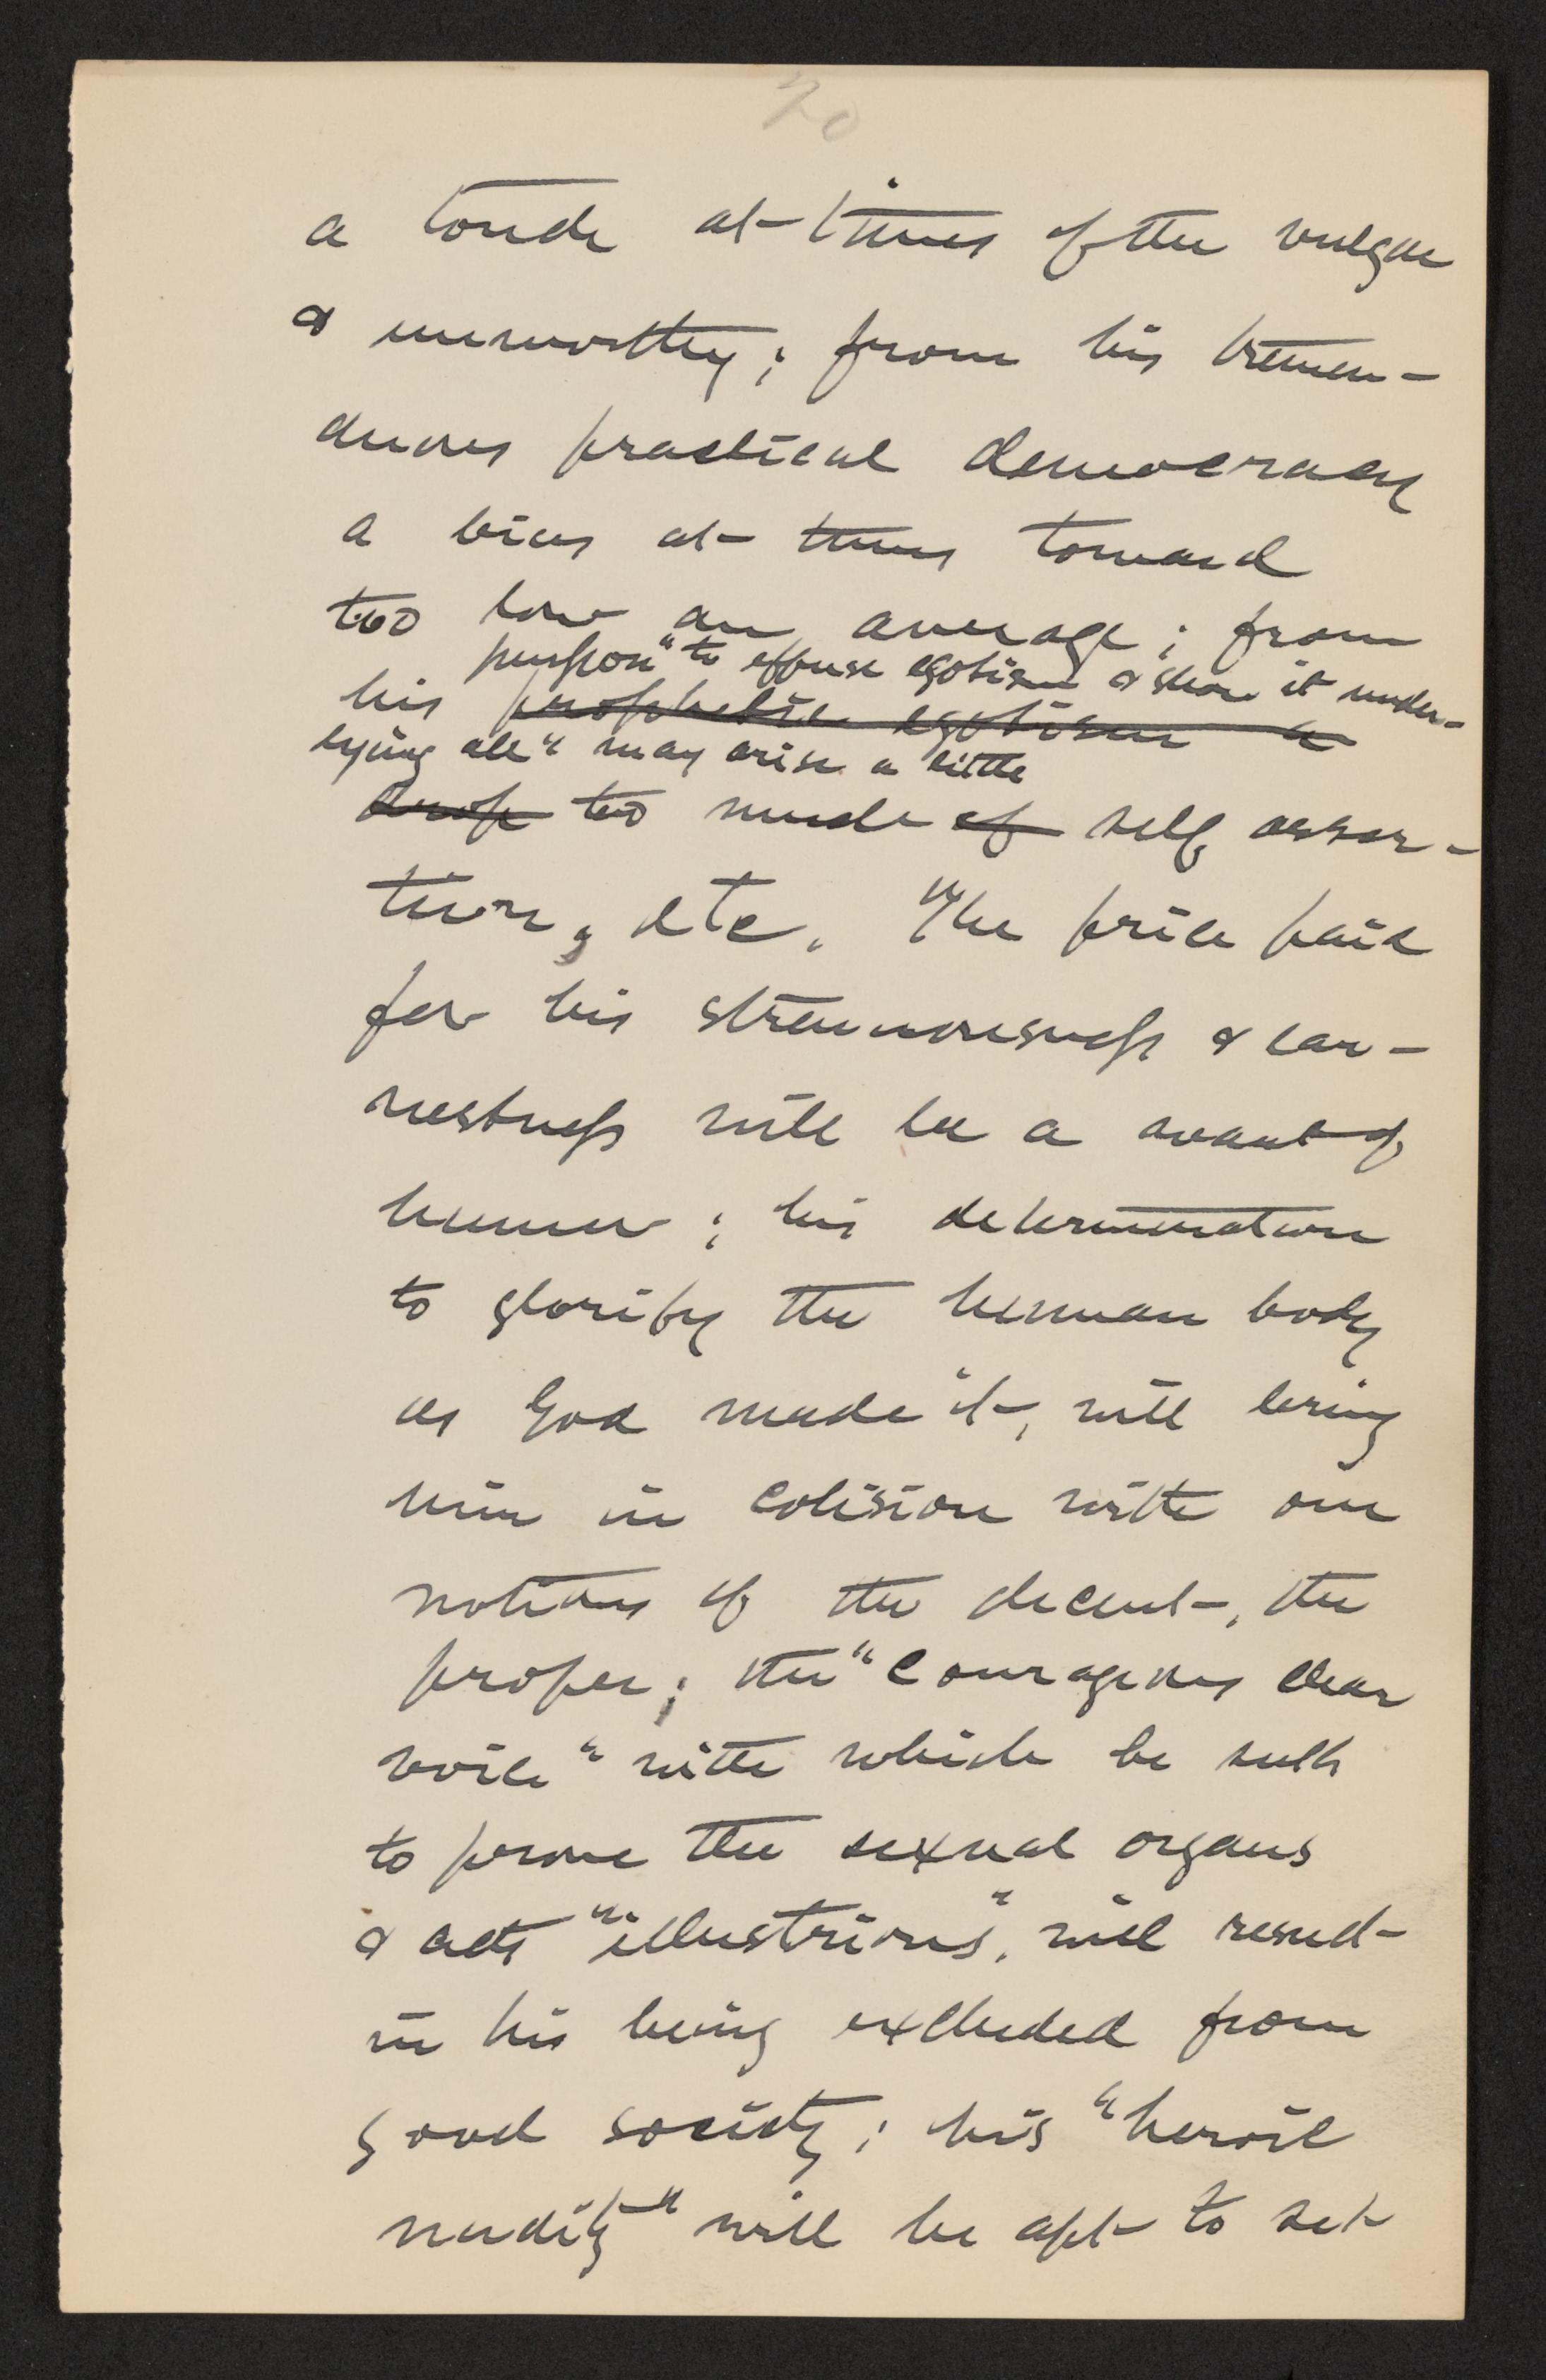 20
a touch at times of the vulgar
& unworthy; from his tremen-
duous practical democracy
a bias at times toward
too low an average; from
purpose "to effuse egotism & show it under-
his prophetic egotism a
lying all" may arise a little
drop too much of self asser-
tion, etc. The price paid
for his strenuousness & ear-
nestness will be a want of
humor; his determination
to glorify the human body
as God made it, will bring
him in colision with our
notions of the decent, the
proper; the "courageous clear
voice" with which he seeks
to prove the sexual organs
& acts "illustrious", will result
in his being excluded from
good society; his "heroic
nudity" will be apt to set